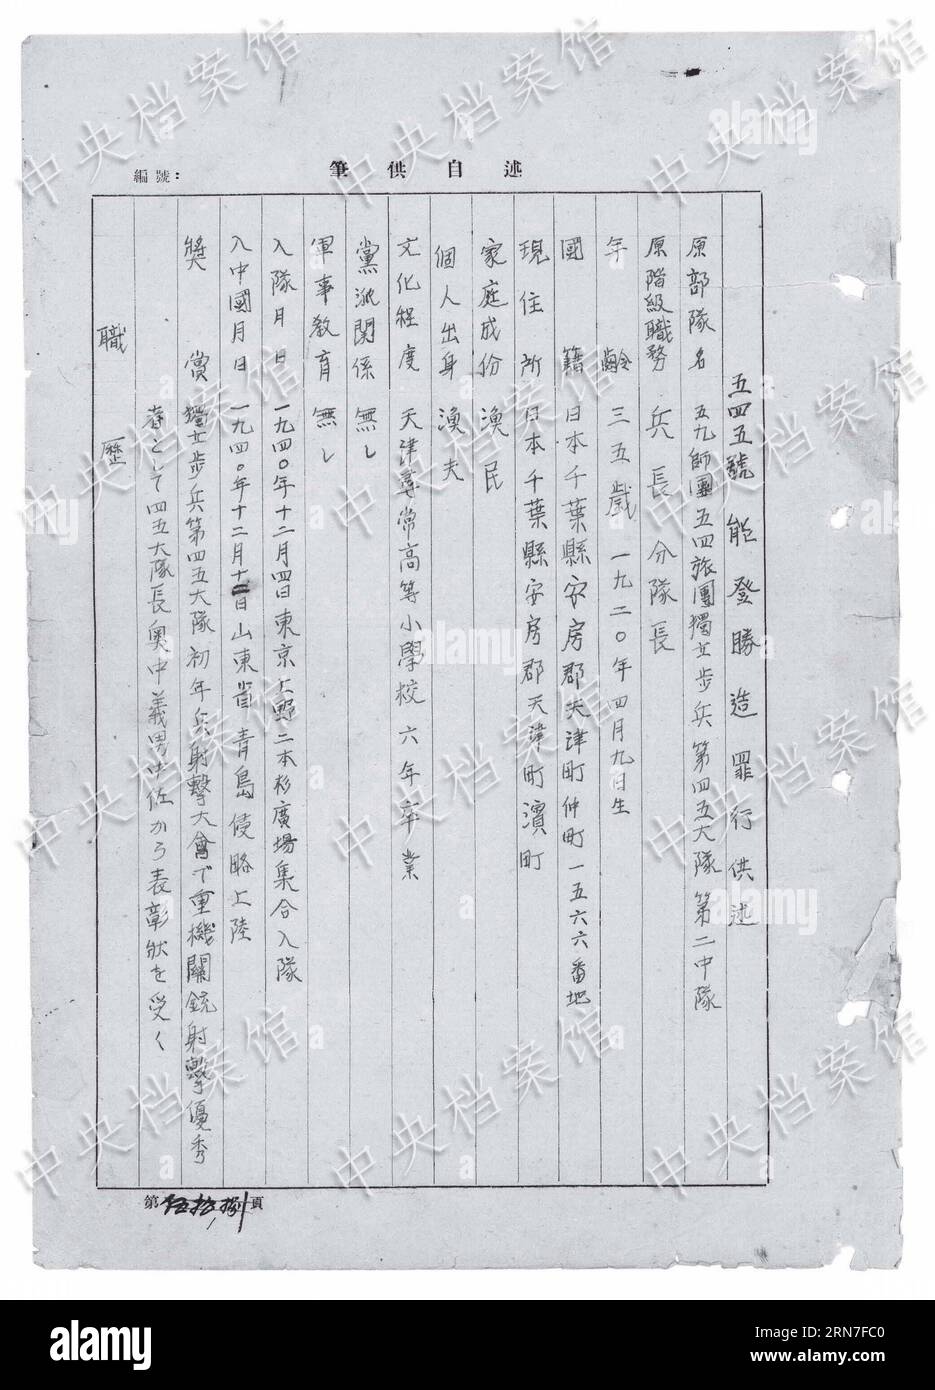 編號：
筆供自述
五四五號 能登勝造罪行供述
原部隊名 五九師團五四旅團獨立步兵第四五大隊第二中隊
原階級職務 兵長 分隊長
年齡 三五歲 一九二〇年四月九日生
國籍 日本千葉縣安房郡天津町仲町一五六六番地
現住所 日本千葉縣安房郡天津町濱町
家庭成份 漁民
個人出身 漁夫
文化程度 天津尋常高等小學校六年卒業
黨派関係 無し
軍事教育 無し
入隊月日 一九四〇年十二月四日東京上野二本杉廣場集合入隊
入中國月日 一九四〇年十二月十二日山東省青島侵略上陸
獎賞 獨立步兵第四五大隊初年兵射擊大會で重機關銃射擊優秀
者として四五大隊長奥中義男中佐から表彰狀を受く
職歷
第伍拾捌頁
中央档案馆
中央档案馆
中央档案馆
中央档案馆
中央档案馆
中央档案馆
中央档案馆
中央档案馆
alamy
alamy
alamy
alamy
Image ID: 2RN7FC0
www.alamy.com